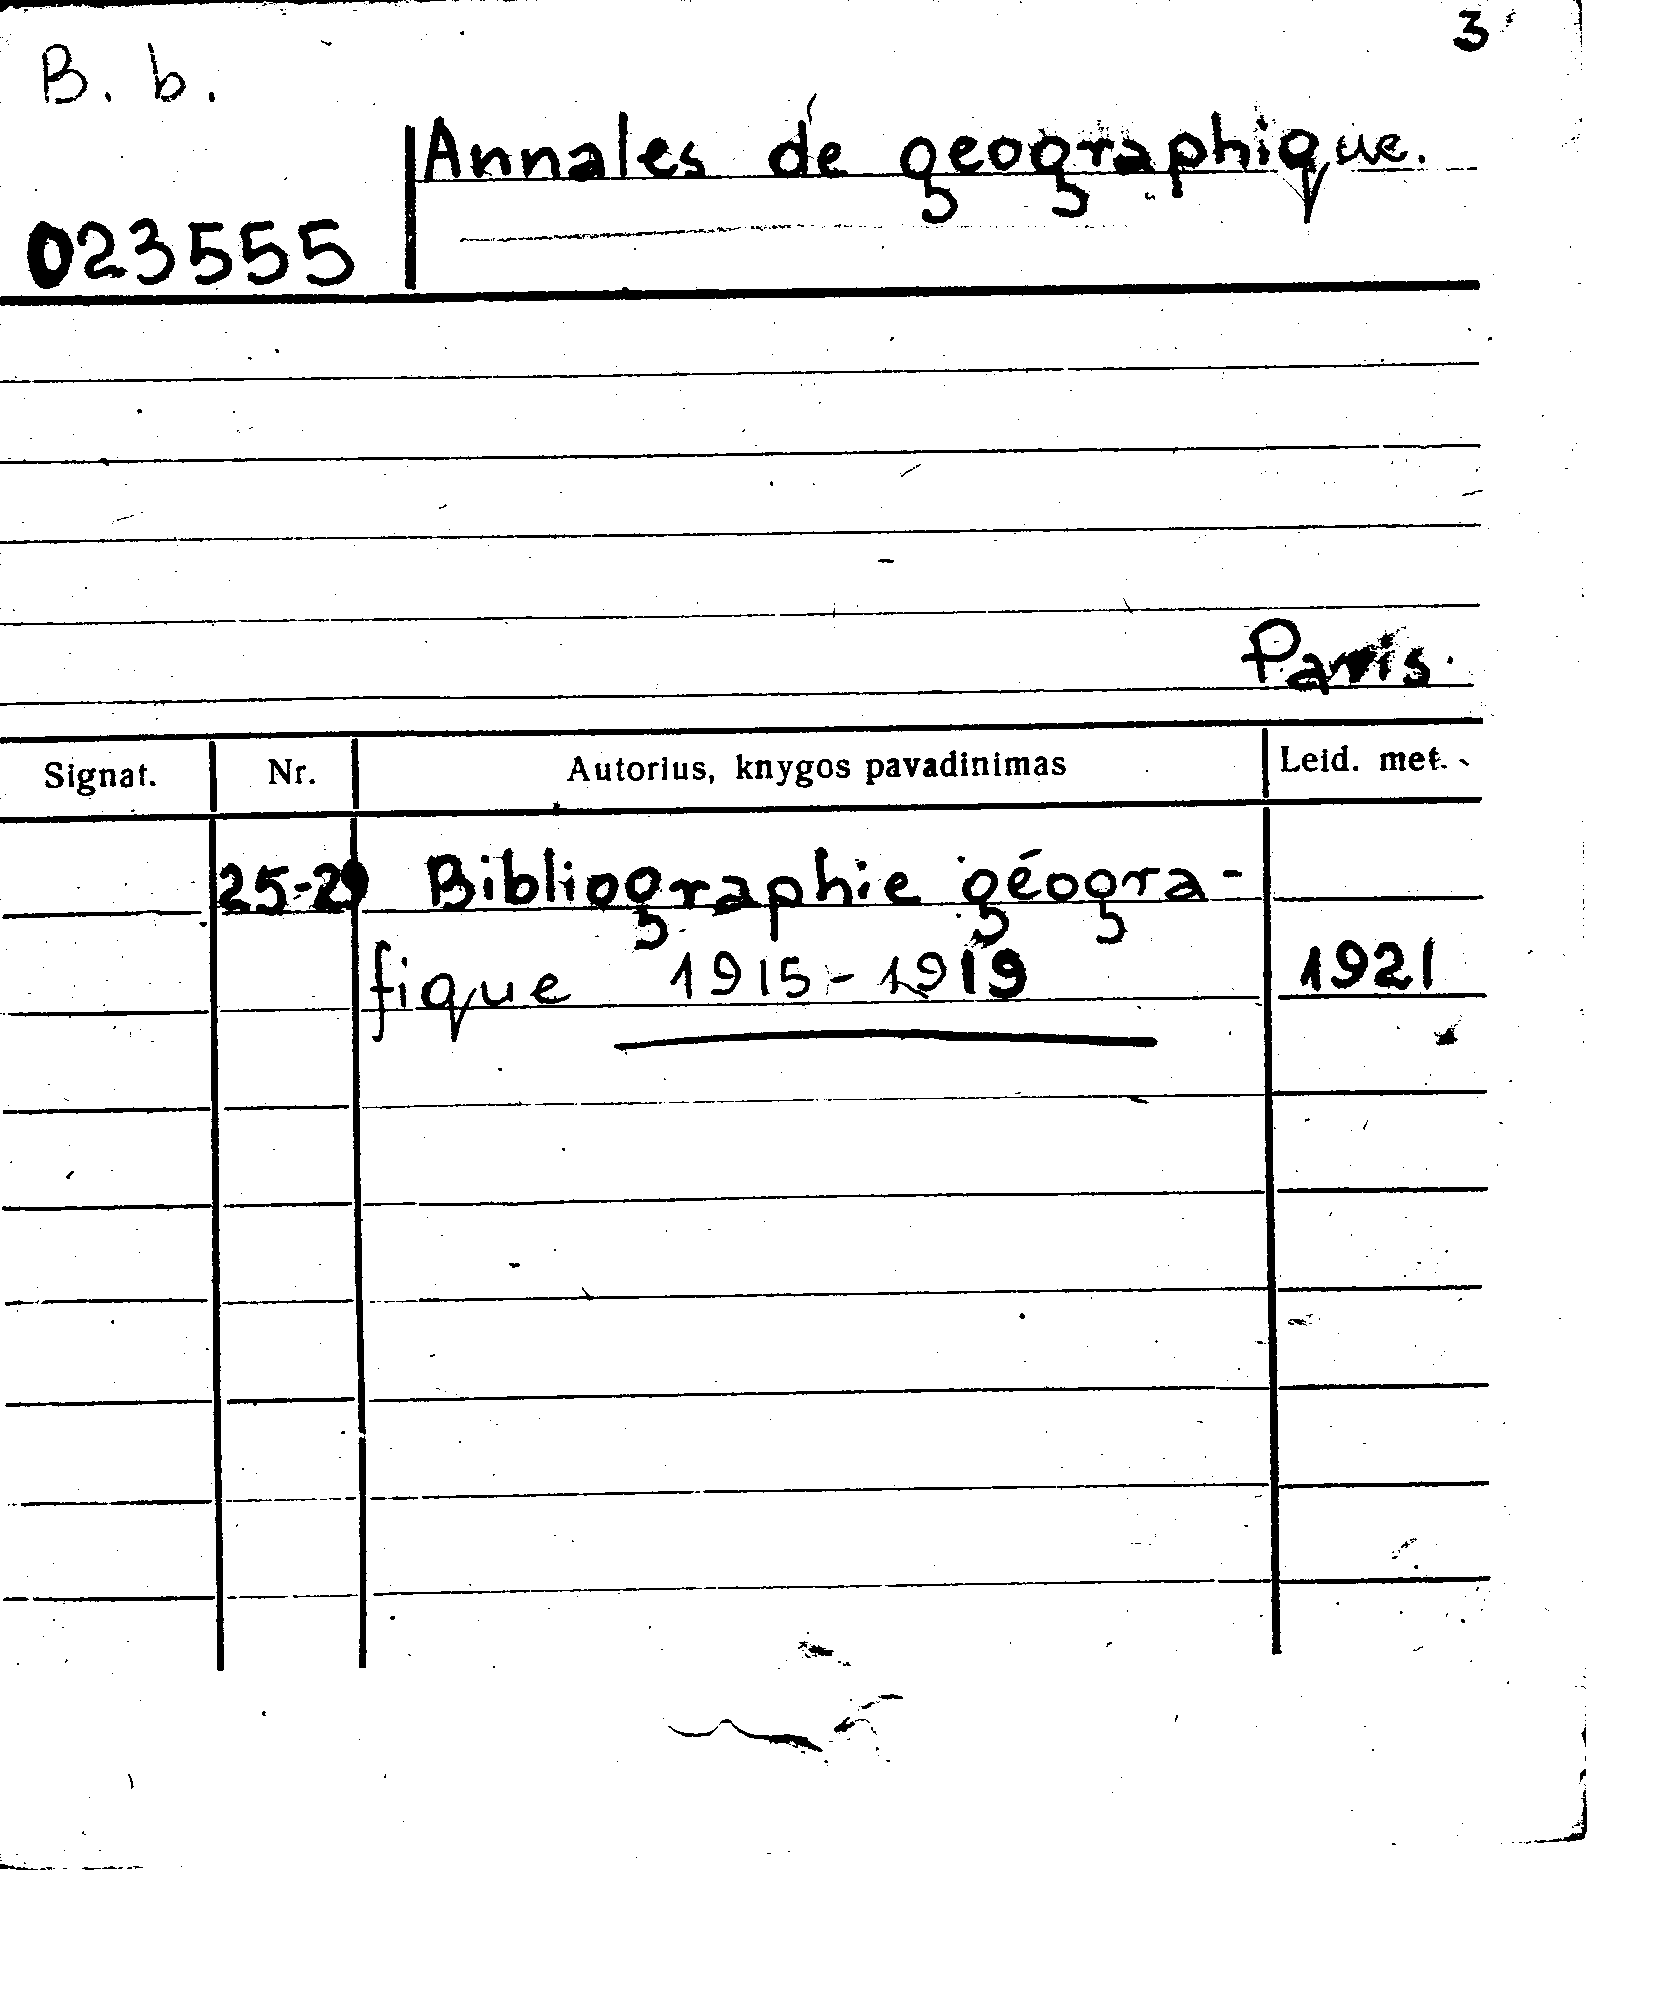 3
B. b.
Annales de geographique.
023555
Paris.
Signat. Nr. Autorius, knygos pavadinimas Leid. met.
25-29 Bibliographie géogra-
fique 1915-1919 1921